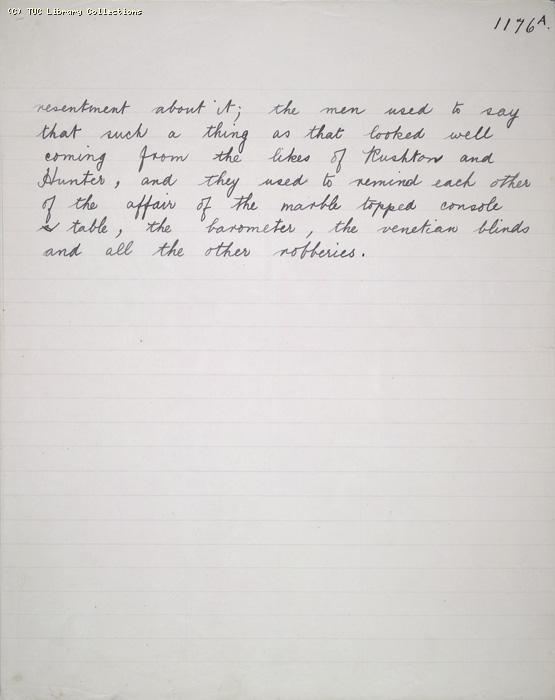 (C) TUC Library Collections
1176A.
resentment about it; the men used to say
that such a thing as that looked well
coming from the likes of Rushton and
Hunter, and they used to remind each other
of the affair of the marble topped console
table, the barometer, the venetian blinds
and all the other robberies.